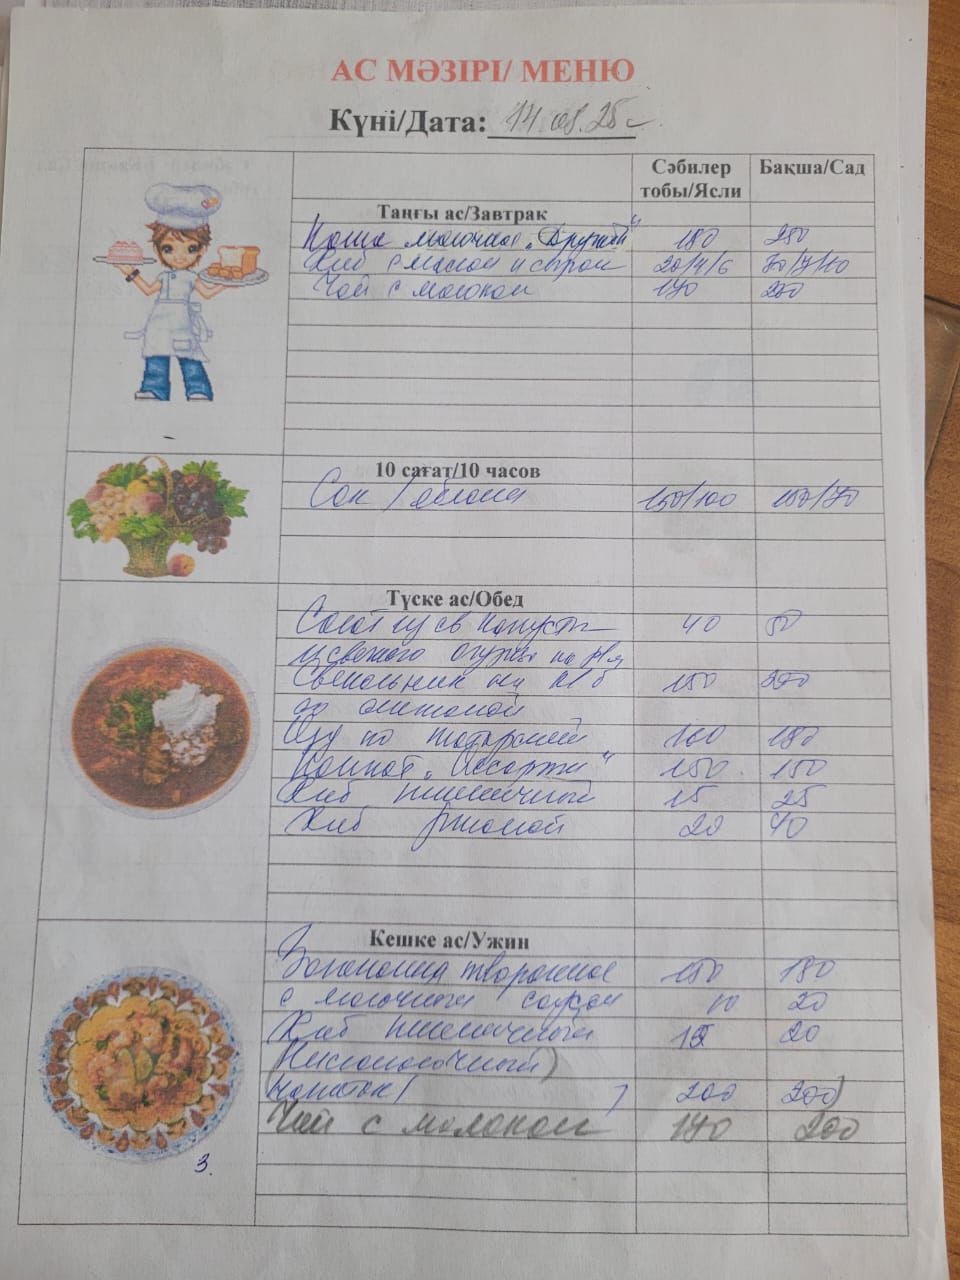 АС МӘЗІРІ/ МЕНЮ
Күні/Дата: 14.08.25г
Сәбилер тобы/Ясли Бақша/Сад
Таңғы ас/Завтрак
Каша молочная „Дружба“ 180 250
Хлеб с маслом и сыром 20/4/6 30/7/10
Чай с молоком 170 200
10 сағат/10 часов
Сок / яблоки 150/100 150/70
Түске ас/Обед
Салат из св капусты 40 50
и свежего огурца на р/м
Свекольник на к/б 150 200
со сметаной
Азу по татарски 100 180
Компот „Ассорти“ 150 150
Хлеб пшеничный 15 25
Хлеб ржаной 20 40
Кешке ас/Ужин
Запеканка творожная 150 180
с молочным соусом 10 20
Хлеб пшеничный 15 20
(Кисломолочный)
напиток ( ) 200 200)
Чай с молоком 170 200
3.